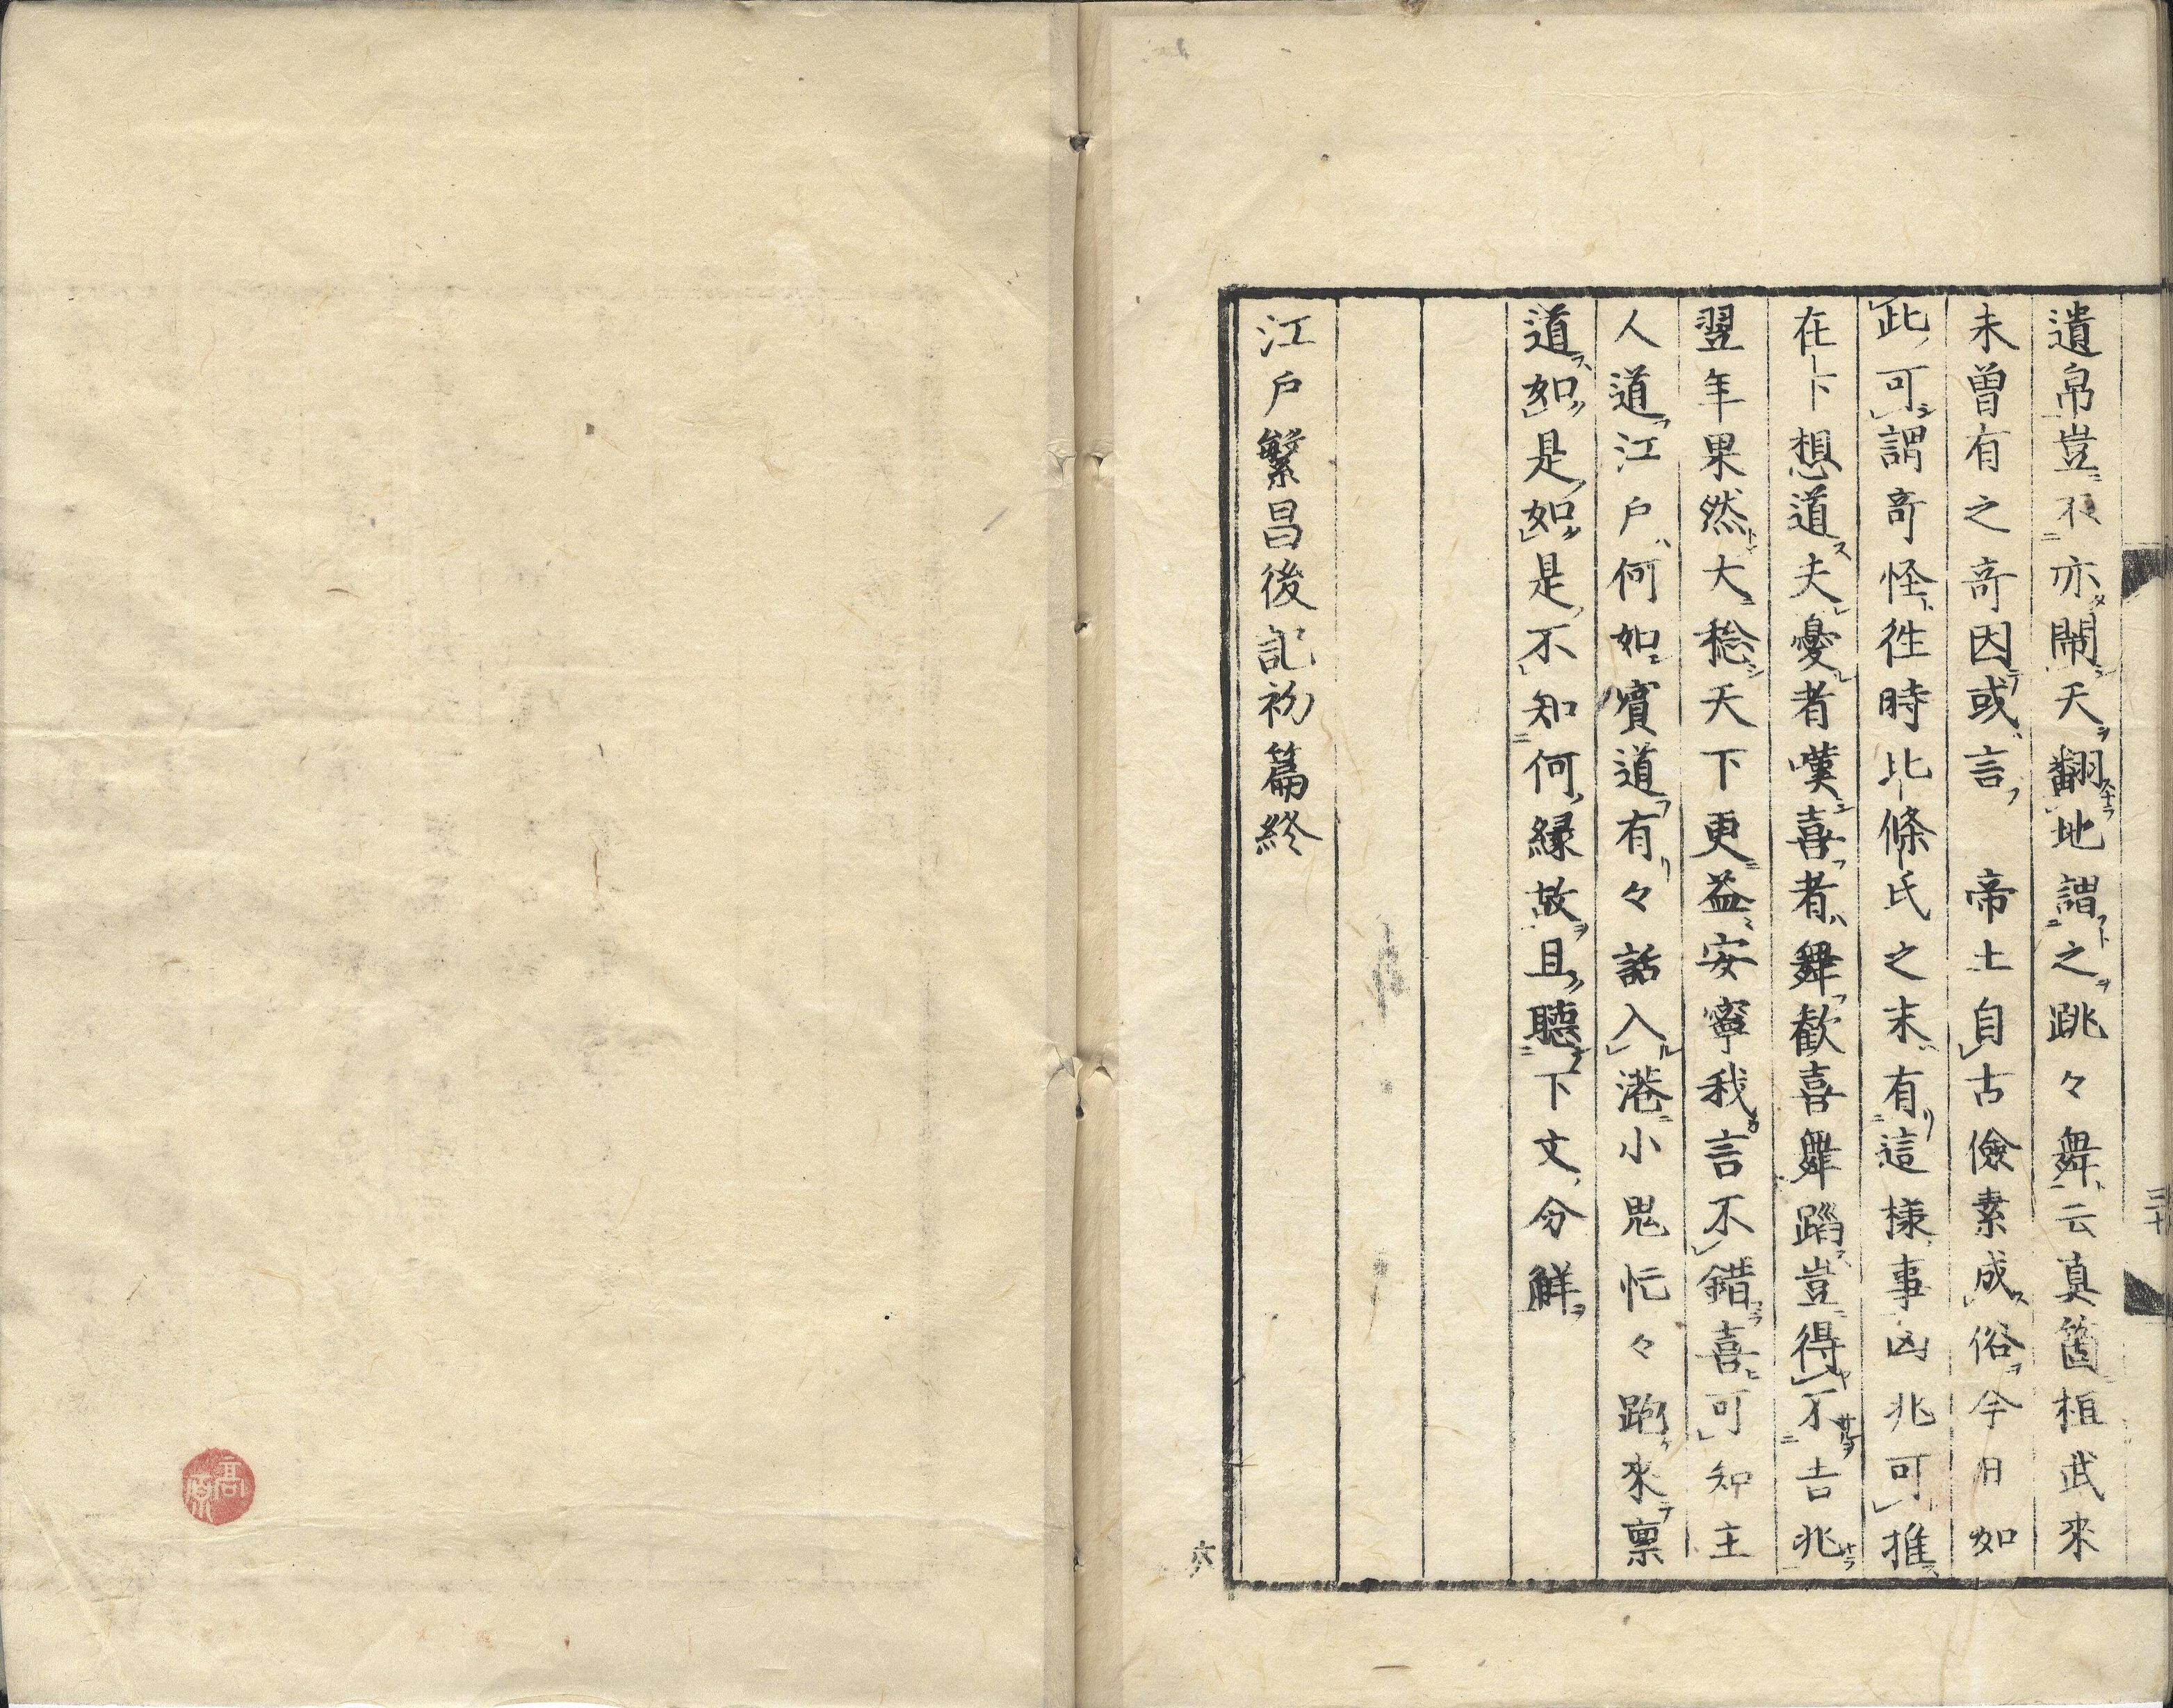 遺帛豈不亦鬧天翻地謂之跳々舞云真箇桓武來
未曽有之竒因或言　帝土自古儉素成俗今日如
此可謂竒怪徃時北條氏之末有這様事凶兆可推
在下想道夫憂者嘆喜者舞歓喜舞蹈豈得不吉兆
翌年果然大稔天下更益安寧我言不錯喜可知主
人道江戸何如賓道有々話入港小鬼忙々跑來稟
道如是如是不知何縁故且聴下文分觧
江戸繁昌後記初篇終
三十
六